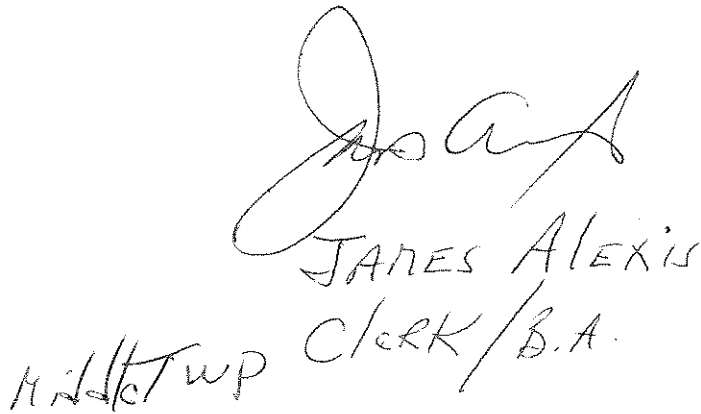 JAMES AlExis
ClerK/B.A.
Middle Twp